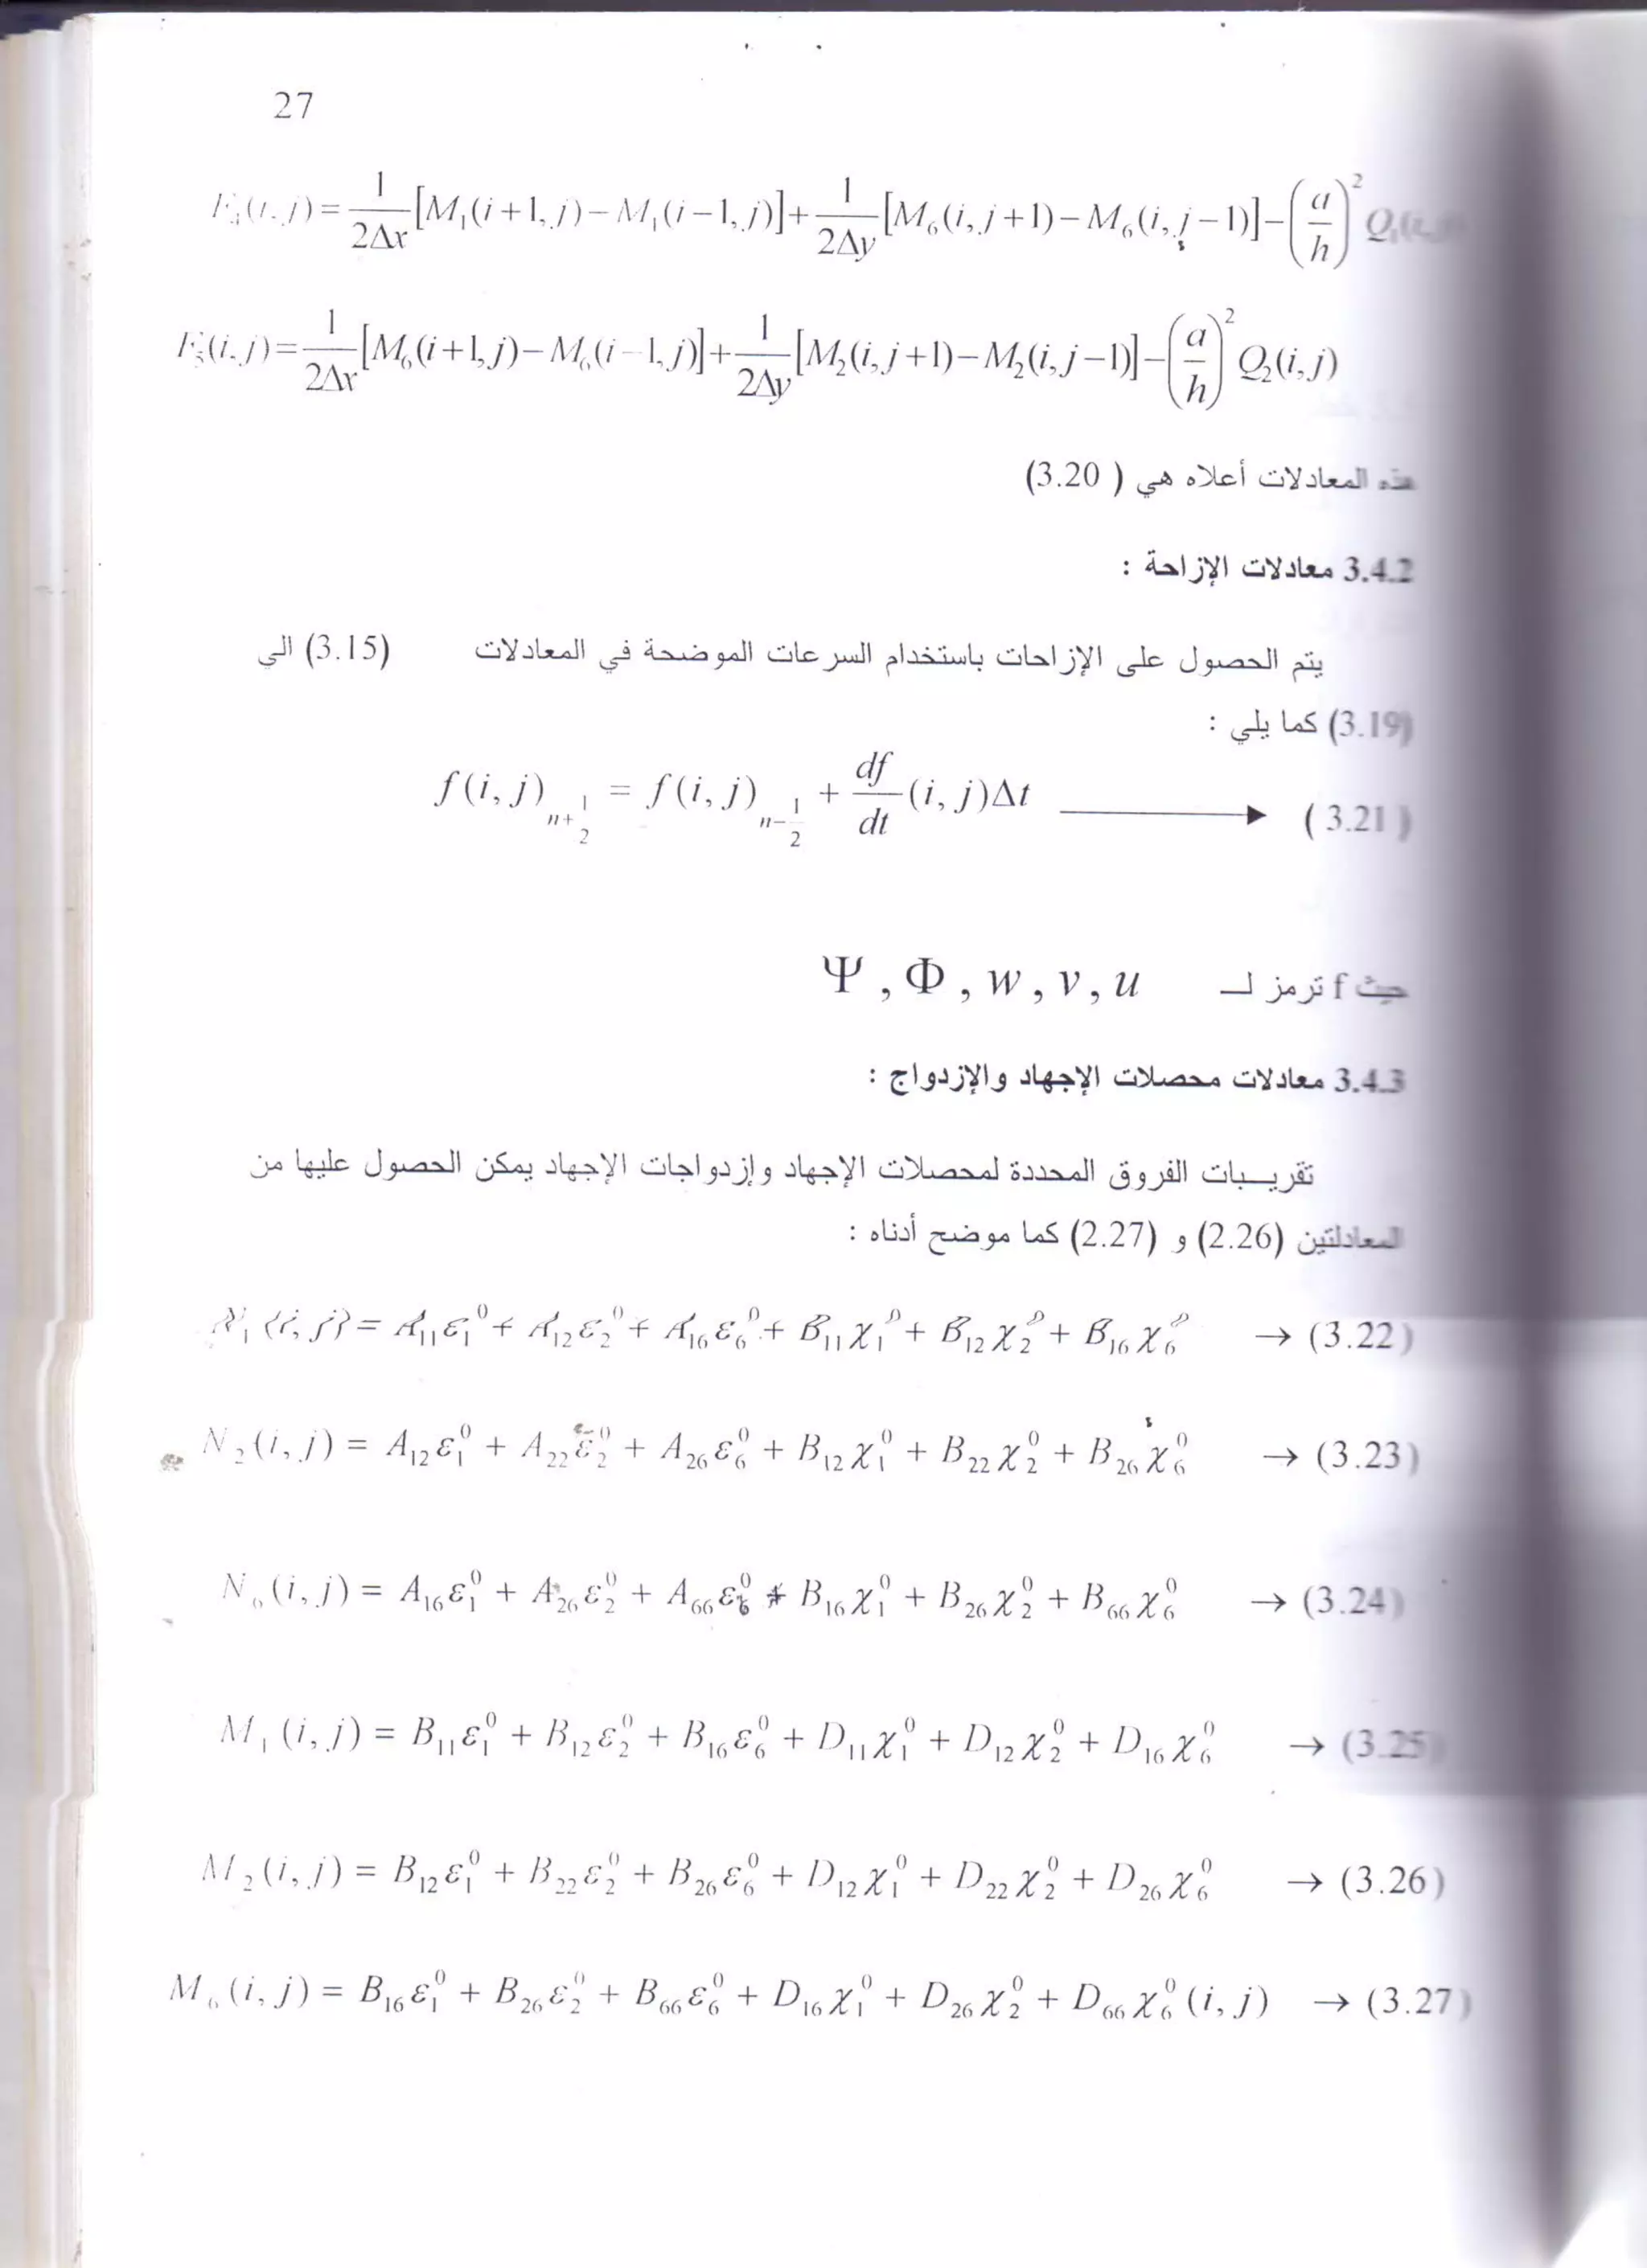 27
F₄(i, j) = 1/2Δx [M₁(i+1, j) − M₁(i−1, j)] + 1/2Δy [M₆(i, j+1) − M₆(i, j−1)] − (a/h)² Q₁(i, j)
F₅(i, j) = 1/2Δx [M₆(i+1, j) − M₆(i−1, j)] + 1/2Δy [M₂(i, j+1) − M₂(i, j−1)] − (a/h)² Q₂(i, j)
هذه المعادلات أعلاه هي ( 3.20)
3.4.2 معادلات الإزاحة :
يتم الحصول على الإزاحات باستخدام السرعات الموضحة في المعادلات (3.15) الي
(3.19) كما يلي :
f(i, j)ₙ₊½ = f(i, j)ₙ₋½ + df/dt (i, j)Δt → ( 3.21 )
حيث f ترمز لـ Ψ , Φ , w , v , u
3.4.3 معادلات محصلات الإجهاد والإزدواج :
تقريبات الفروق المحددة لمحصلات الإجهاد وإزدواجات الإجهاد يمكن الحصول عليها من
المعادلتين (2.26) و (2.27) كما موضح أدناه :
N₁ (i, j) = A₁₁ε₁⁰ + A₁₂ε₂⁰ + A₁₆ε₆⁰ + B₁₁χ₁⁰ + B₁₂χ₂⁰ + B₁₆χ₆⁰ → (3.22)
N₂ (i, j) = A₁₂ε₁⁰ + A₂₂ε₂⁰ + A₂₆ε₆⁰ + B₁₂χ₁⁰ + B₂₂χ₂⁰ + B₂₆χ₆⁰ → (3.23)
N₆ (i, j) = A₁₆ε₁⁰ + A₂₆ε₂⁰ + A₆₆ε₆⁰ + B₁₆χ₁⁰ + B₂₆χ₂⁰ + B₆₆χ₆⁰ → (3.24)
M₁ (i, j) = B₁₁ε₁⁰ + B₁₂ε₂⁰ + B₁₆ε₆⁰ + D₁₁χ₁⁰ + D₁₂χ₂⁰ + D₁₆χ₆⁰ → (3.25)
M₂ (i, j) = B₁₂ε₁⁰ + B₂₂ε₂⁰ + B₂₆ε₆⁰ + D₁₂χ₁⁰ + D₂₂χ₂⁰ + D₂₆χ₆⁰ → (3.26)
M₆ (i, j) = B₁₆ε₁⁰ + B₂₆ε₂⁰ + B₆₆ε₆⁰ + D₁₆χ₁⁰ + D₂₆χ₂⁰ + D₆₆χ₆⁰ (i, j) → (3.27)